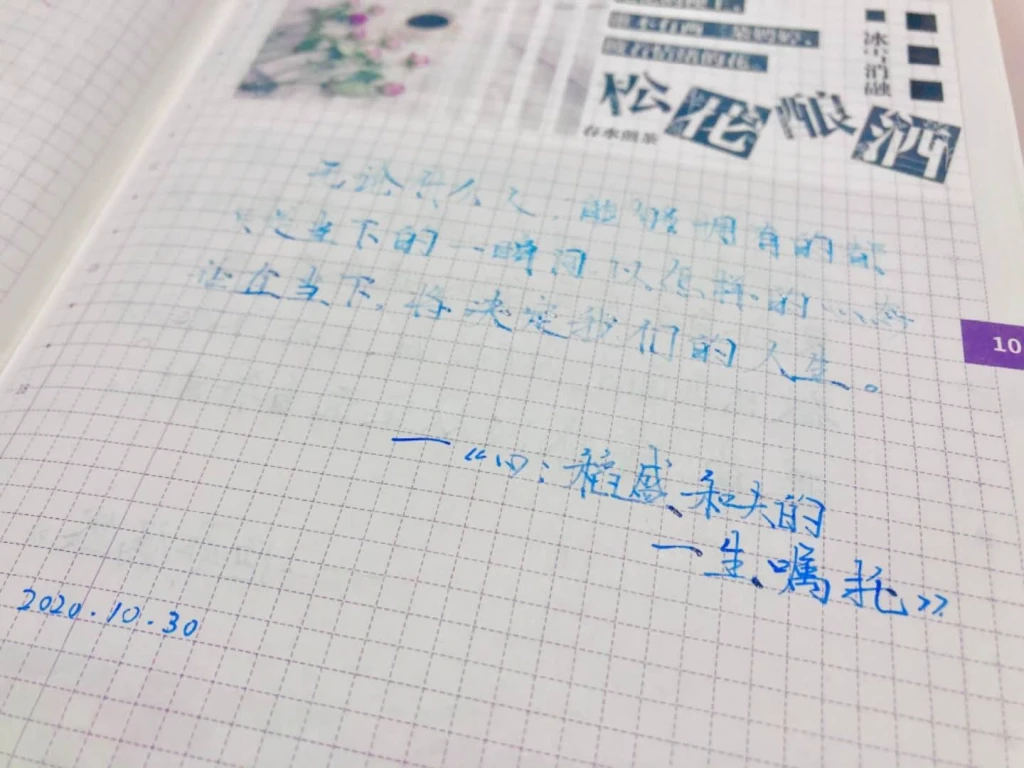 谁不有两三
被石情绪的花。
松花酿酒
春水煎茶
冰雪消融
无论, 能够拥有的都
只是当下的一瞬间 以怎样的心态
活在当下, 将决定我们的人生。
—《心: 稻盛和夫的
一生嘱托》
10
2020.10.30